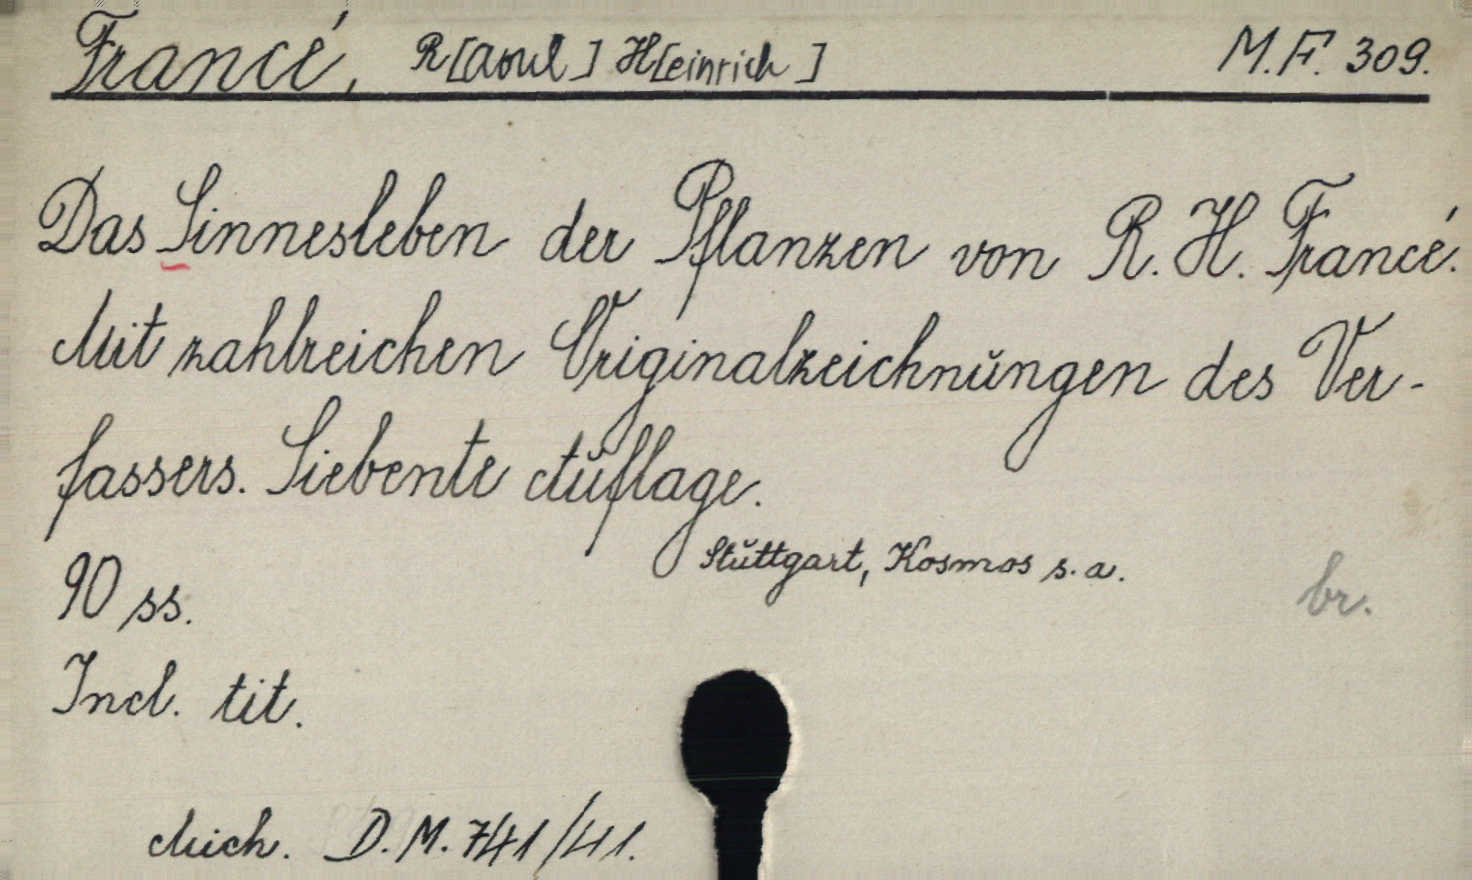 Francé, R[aoul] H[einrich] M.F. 309.
Das Sinnesleben der Pflanzen von R. H. Francé.
Mit zahlreichen Originalzeichnŭngen des Ver-
fassers. Siebente Aŭflage.
Stŭttgart, Kosmos s. a.
br.
90 ss.
Incl. tit.
Mich. D. M. 741/41.